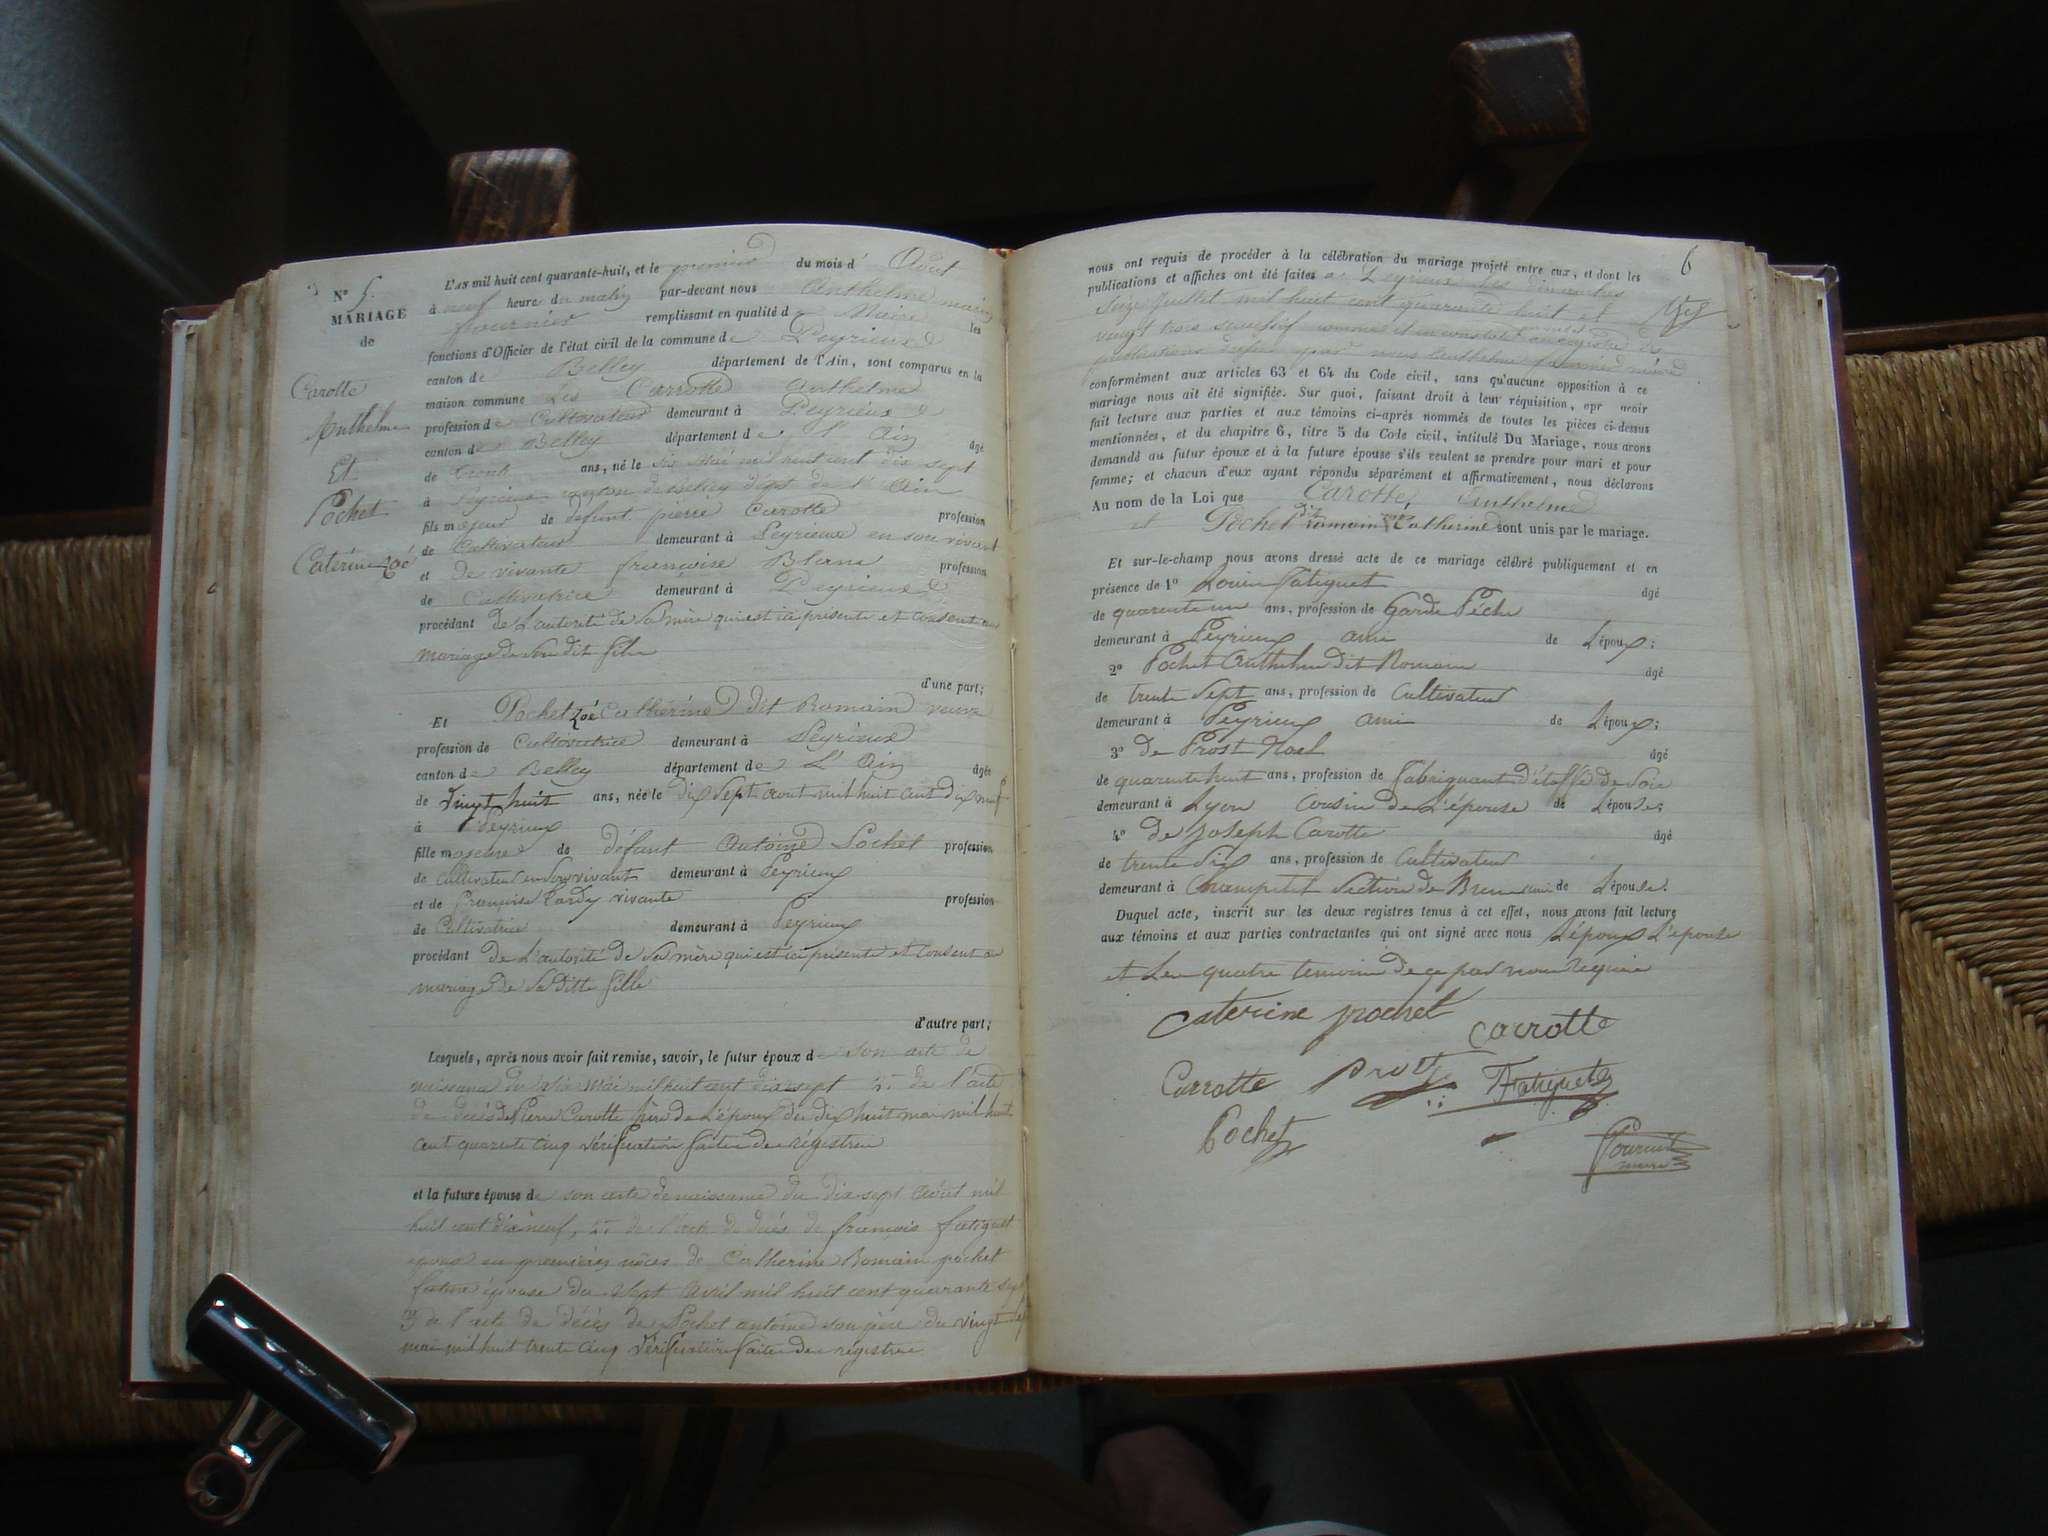 N° 5.
MARIAGE
de
Carotte
Anthelme
Et
Pochet
Catérine Zoé
L'AN mil huit cent quarante-huit, et le premier du mois d' Août
à neuf heure du matin par-devant nous Anthelme
fournier remplissant en qualité de Maire les
fonctions d'Officier de l'état civil de la commune de Peyrieux
canton de Belley département de l'Ain, sont comparus en la
maison commune Carrotte Anthelme
profession de Cultivateur demeurant à Peyrieux
canton de Belley département de l'Ain âgé
de trente ans, né le six Mai mil huit cent dix sept
à Peyrieux canton de Belley dépt de l'Ain
fils majeur de défunt pierre Carotte profession
de Cultivateur demeurant à Peyrieux en son vivant
et De vivante françoise Blanc profession
de Cultivatrice demeurant à Peyrieux
procédant De L'autorité de Sa mère qui est ici présente et Consent au
mariage de Son dit fils
d'une part;
Et Pochet Zoé Catherine dit Romain veuve
profession de Cultivatrice demeurant à Peyrieux
canton de Belley département de L'Ain âgée
de Vingt huit ans, née le Dix Sept aout mil huit cent Dix neuf
à Peyrieux
fille majeure de défunt Antoine Pochet profession
de Cultivateur en Son vivant demeurant à Peyrieux
et de Françoise Tardy vivante profession
de Cultivatrice demeurant à Peyrieux
procédant de L'autorité de Sa mère qui est ici présente et Consent au
mariage de Sa ditte fille
d'autre part;
Lesquels, après nous avoir fait remise, savoir, le futur époux de son acte de
naissance du six Mai mil huit cent dix sept 2° de l'acte
de décés de Pierre Carotte père de L'époux du dix huit mai mil huit
cent quarente cinq Vérification faite des régistres
et la future épouse de son acte de naissance du dix sept août mil
huit cent dix neuf, 2° de l'acte de décés de françois fatiguet
époux en premières nôces de Catherine Romain pochet
future épouse du Sept Avril mil huit cent quarante sept
3 de l'acte de décès de Pochet antoine son père du vingt
mai mil huit trente cinq Vérification faite des régistres
6
nous ont requis de procéder à la célébration du mariage projeté entre eux, et dont les
publications et affiches ont été faites à Peyrieux les dimanches
Seize Juillet mil huit cent quarante huit et
vingt trois
publications par nous Anthelme fournier maire
conformément aux articles 63 et 64 du Code civil, sans qu'aucune opposition à ce
mariage nous ait été signifiée. Sur quoi, faisant droit à leur réquisition, apr avoir
fait lecture aux parties et aux témoins ci-après nommés de toutes les pièces ci-dessus
mentionnées, et du chapitre 6, titre 5 du Code civil, intitulé Du Mariage, nous avons
demandé au futur époux et à la future épouse s'ils veulent se prendre pour mari et pour
femme; et chacun d'eux ayant répondu séparément et affirmativement, nous déclarons
Au nom de la Loi que Carotte, Anthelme
et Pochet dit romain Catherine sont unis par le mariage.
Et sur-le-champ nous avons dressé acte de ce mariage célébré publiquement et en
présence de 1° Louis Fatiguet âgé
de quarente un ans, profession de Garde Pêche
demeurant à Peyrieux ami de L'époux;
2° Pochet Anthelme dit Romain âgé
de trente Sept ans, profession de Cultivateur
demeurant à Peyrieux ami de L'époux;
3° de Prost Noel âgé
de quarente huit ans, profession de fabriquant d'étoffe de Soie
demeurant à Lyon Cousin de L'épouse de L'épouse;
4° de Joseph Carotte âgé
de trente Six ans, profession de Cultivateur
demeurant à Champetel Section de Bren ami de L'épouse.
Duquel acte, inscrit sur les deux registres tenus à cet effet, nous avons fait lecture
aux témoins et aux parties contractantes qui ont signé avec nous L'époux L'épouse
et Les quatre temoins de ce par nous requis
Caterine pochet
Carrotte
Carrotte prost Fatiguet
Pochet
Fournier
maire